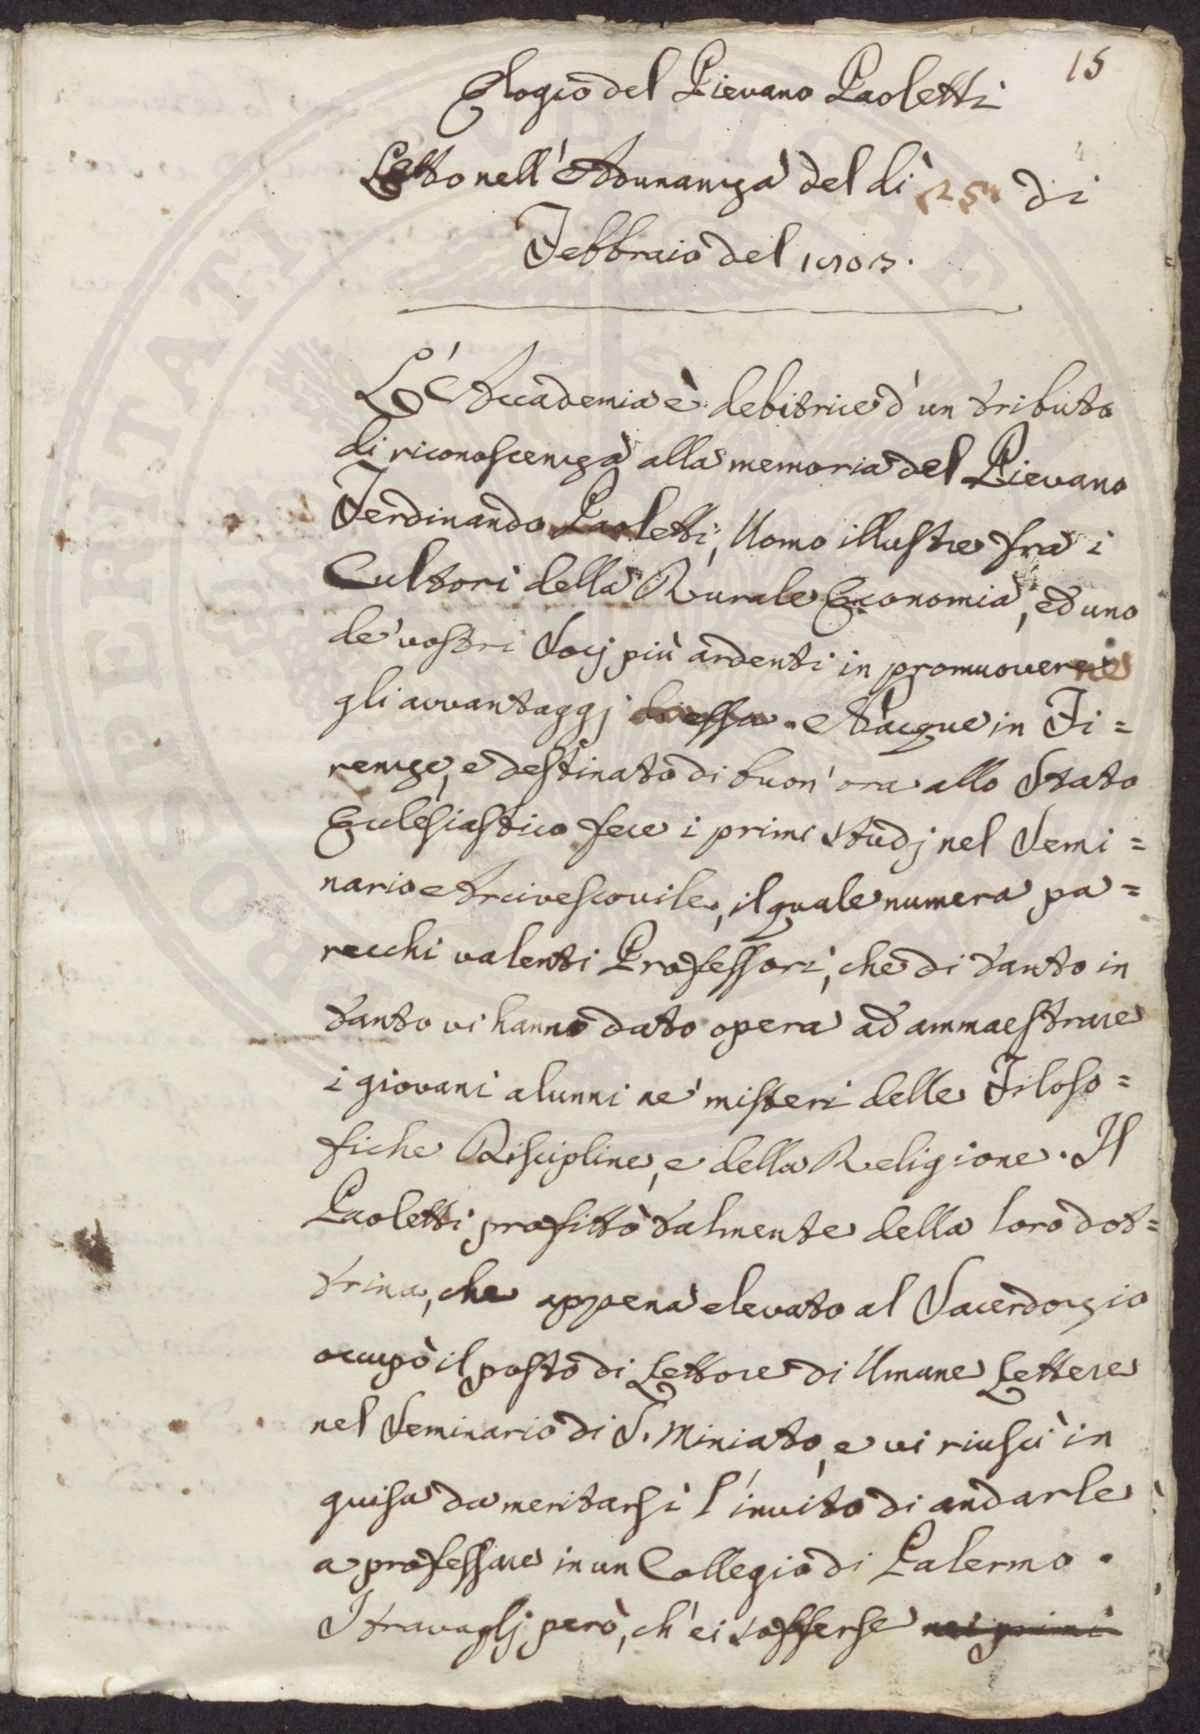 15
Elogio del Pievano Paoletti
Letto nell'Adunanza del dì 25 di
Febbraio del 1803.
L'Accademia è debitrice d'un tributo
di riconoscenza alla memoria del Pievano
Ferdinando Paoletti, Uomo illustre fra i
Cultori della Rurale Economia, ed uno
de' vostri Socj più ardenti in promuoverne
gli avvantaggj di essa. Nacque in Fi=
renze, e destinato di buon'ora allo Stato
Ecclesiastico fece i primi studj nel Semi=
nario Arcivescovile, il quale numera pa=
recchi valenti Professori, che di tanto in
tanto vi hanno dato opera ad ammaestrare
i giovani alunni ne' misteri delle Filoso=
fiche Discipline, e della Religione. Il
Paoletti profittò talmente della loro dot=
trina, che appena elevato al Sacerdozio
occupò il posto di Lettore di Umane Lettere
nel Seminario di S. Miniato, e vi riuscì in
guisa da meritarsi l'invito di andarle
a professare in un Collegio di Palermo.
I travaglj però, ch'ei sofferse nei primi
PROSPERITATI PUBLICAE